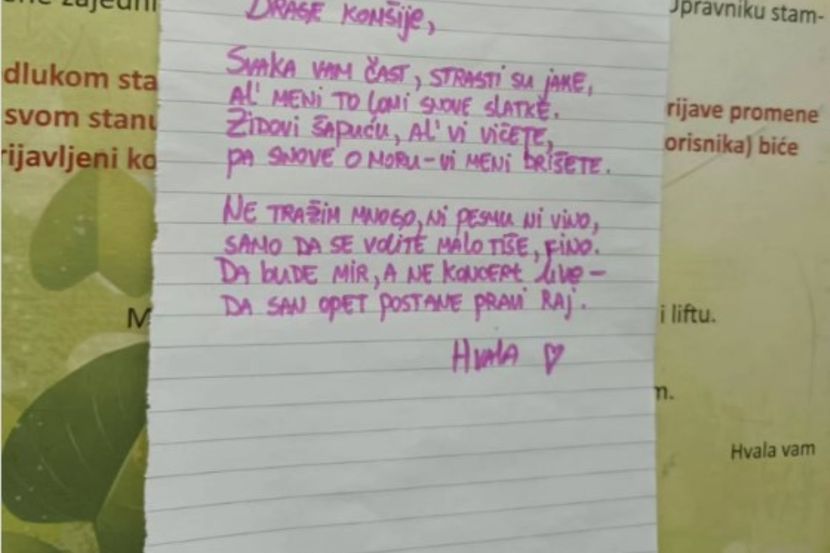 DRAGE KOMŠIJE,
SVAKA VAM ČAST, STRASTI SU JAKE,
AL' MENI TO LOMI SNOVE SLATKE.
ZIDOVI ŠAPUĆU, AL' VI VIČETE,
PA SNOVE O MORU-VI MENI BRIŠETE.
NE TRAŽIM MNOGO, NI PESMU NI VINO,
SAMO DA SE VOLITE MALO TIŠE, FINO.
DA BUDE MIR, A NE KONCERT live-
DA SAN OPET POSTANE PRAVI RAJ.
HVALA ♡
zajedni
dlukom sta
svom stanu
rijavljeni ko
M
Upravniku stam-
rijave promene
orisnika) biće
i liftu.
m.
Hvala vam